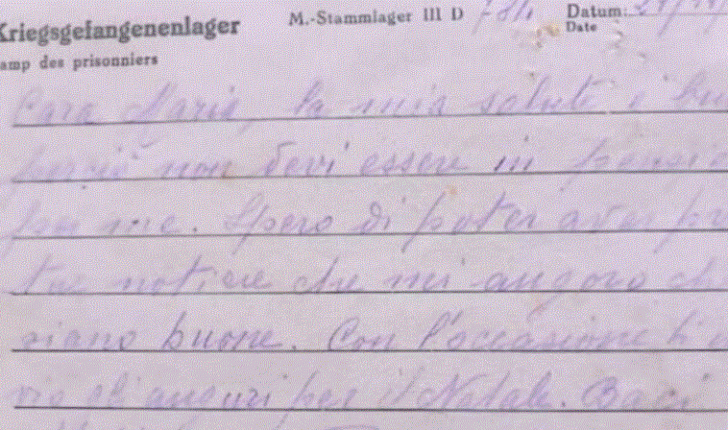 Kriegsgefangenenlager M.-Stammlager III D Datum:
amp des prisonniers Date
Cara Maria, la mia salute è bu
perciò non devi essere in pensie
per me. Spero di poter aver pr
tue notizie che mi auguro ch
siano buone. Con l'occasione ti
vio gli auguri per il Natale. Baci